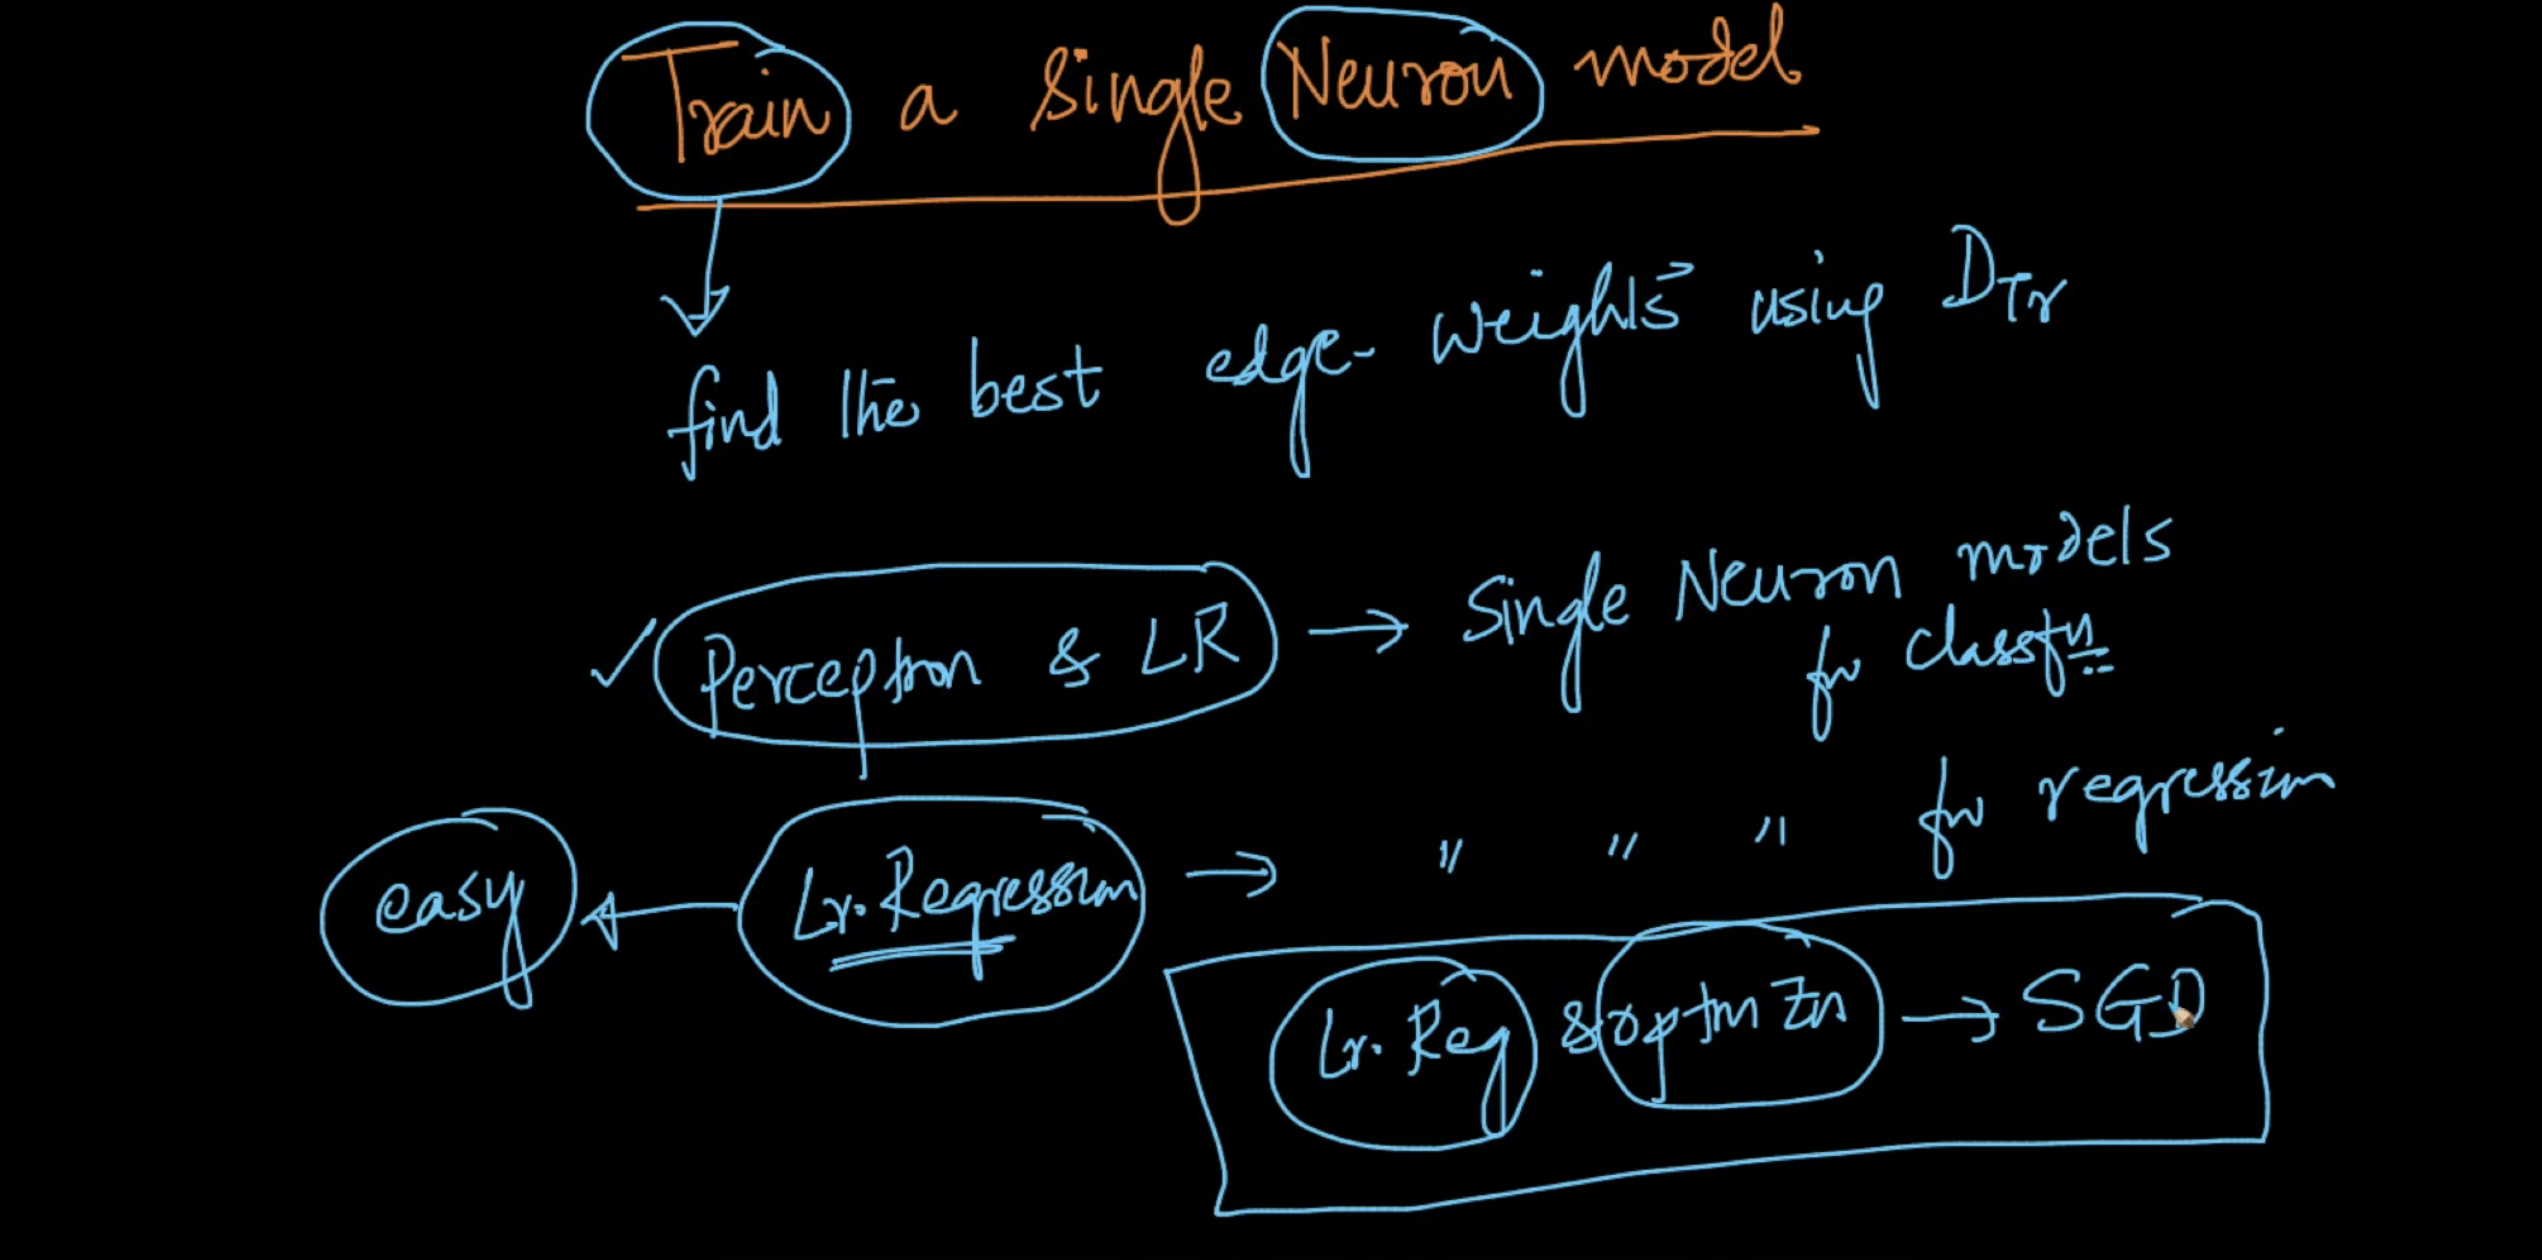 Train a Single Neuron model
find the best edge-weights using DTr
Perceptron & LR → Single Neuron models
for classfn
easy ← Lr. Regression → " " " for regression
Lr. Reg & optmzn → SGD